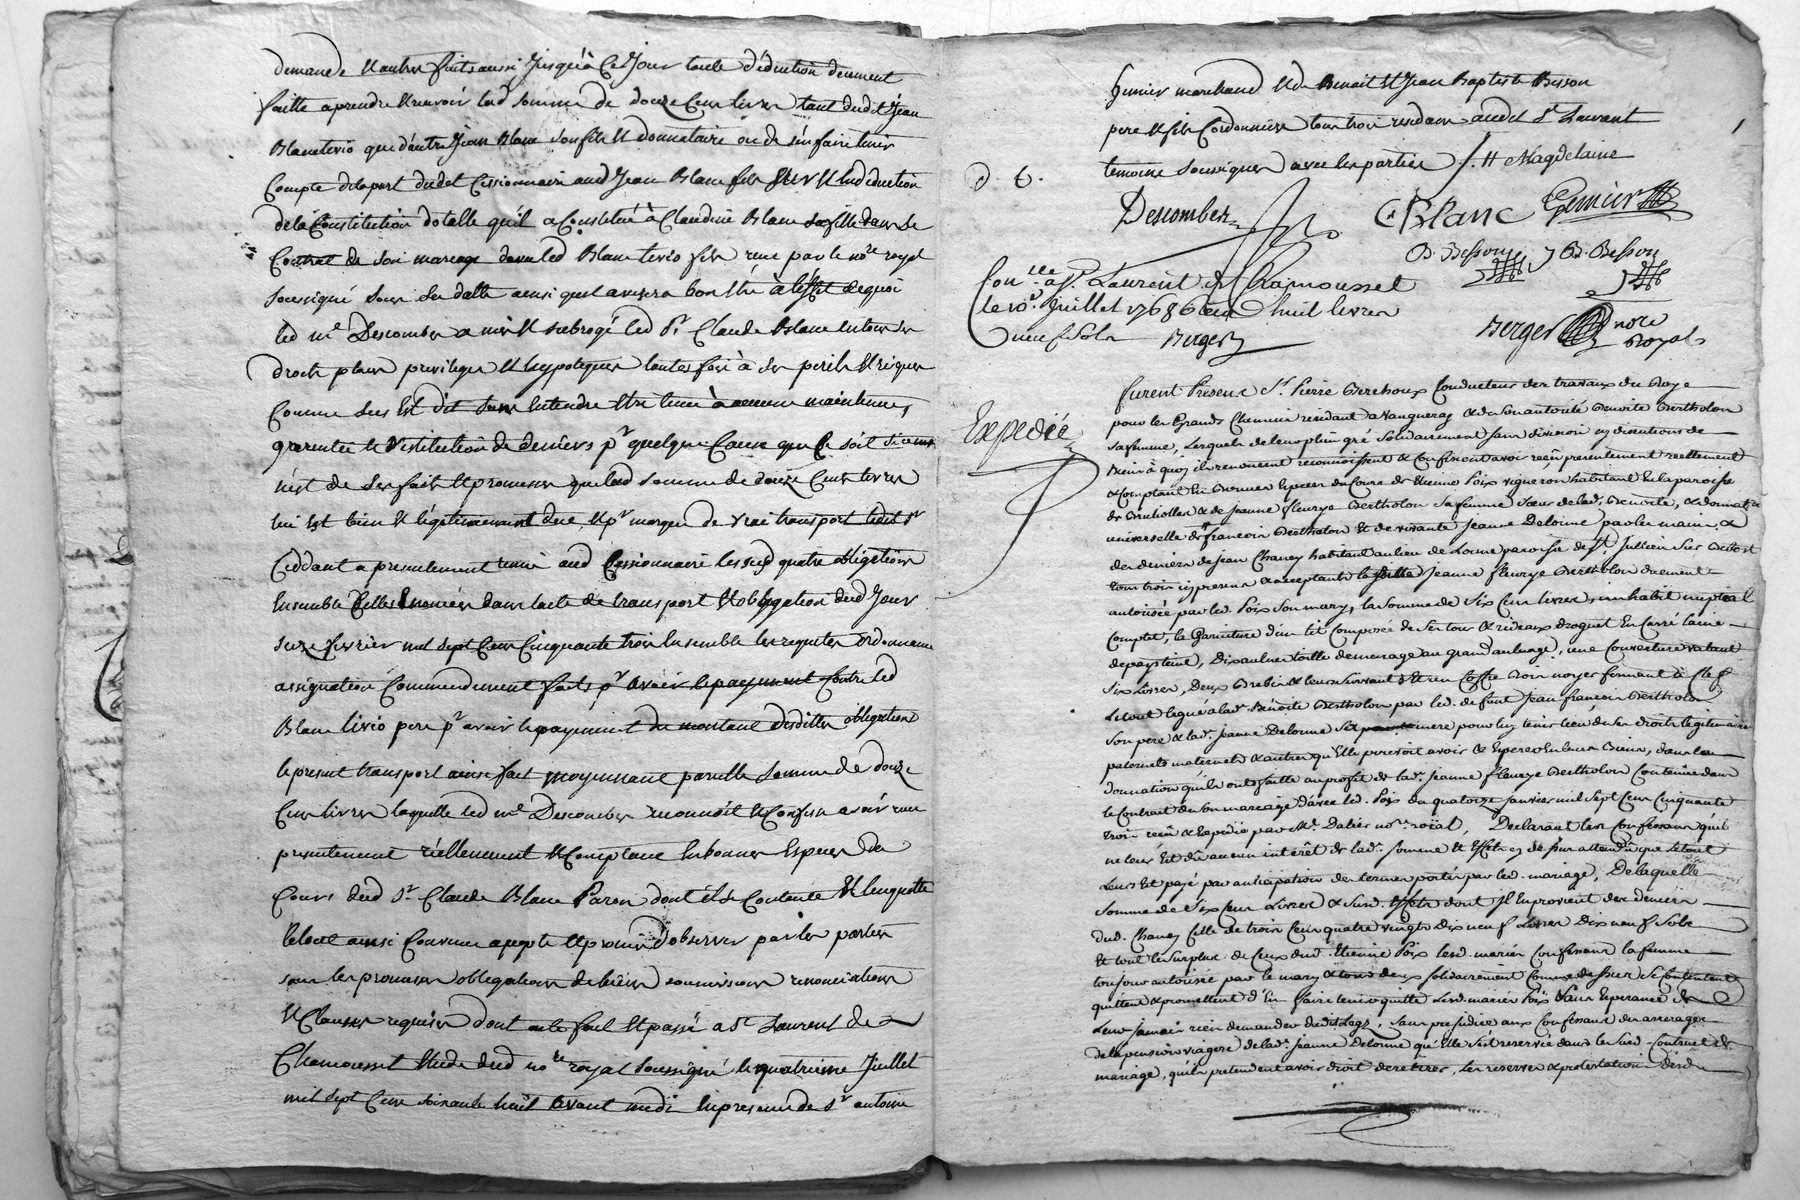 demande & autres faits aussi jusqu'à ce jour toute déduction deuement
faitte a prendre & recevoir lad somme de douze cens livres tant dudit Jean
Blanc livio que d'autre Jean Blanc son fils & donnataire ou de s'en faire tenir
compte de la part dudit cessionnaire aud Jean Blanc fils sur & en deduction
de la constitution dotalle qu'il a constitué à Claudine Blanc sa fille dans le
contrat de son mariage avec led Blanc livio fils reçu par le nore royal
soussigné sous sa datte ainsi quil avisera bon être à l'effet de quoi
led me Descombes a mis & subrogé led sr Claude Blanc en tous ses
droits places privileges & hypoteques toutes fois à ses perils & risques
comme sus est dit sans entendre être tenu à aucune maintenue,
garentie ni restitution de deniers pr quelque cause que ce soit si ce
n'est de ses faits & promesses que lad somme de douze cens livres
lui est bien & légitimement due, & pr marque de vrai transport ledit sr
ceddant a presentement remis aud cessionnaire les susd quatre obligations
ensemble celles énoncées dans l'acte de transport & obligation dud jour
seize fevrier mil sept cens cinquante trois ensemble les requetes ordonnances
assignation commendement faits pr avoir le payement contre led
Blanc livio pere pr avoir le payement du montant desdittes obligations
le present transport ainsi fait moyennant pareille somme de douze
cens livres laquelle led me Descombes reconnoit & confesse avoir reçu
presentement réellement & comptant en bonnes especes du
cours dud sr Claude Blanc Paron dont il se contente & l'en quitte
le tout ainsi convenu accepté & promis d'observer par les parties
sous les promesses obligations de biens soumissions renonciations
& clauses requises dont acte fait & passé a St Laurent de
Chamousset etude dud nore royal soussigné le quatrieme Juillet
mil sept cens soixante huit avant midi en presence de sr antoine
Gemier marchand & de Benoit & Jean Baptiste Besson
pere & fils cordonniers tous trois residans audit St Laurent
temoins soussignés avec les parties
Descombes
C Blanc
Gemier
B. Besson
J B. Besson
Conlle a St Laurent de Chamousset
le 10e Juillet 1768 reçu huit livres
neuf sols
Berger
Berger nore
royal
Expedié
furent Presens Sr Pierre Berchoux Conducteur des travaux du Roye
pour les Grands Chemins residant a Vaugneray & de son autorité Benoite Bertholon
sa femme, lesquels de leur plein gré solidairement sans division ny discutions de
biens à quoy ils renoncent reconnoissent & confessent avoir reçeu presentement reellement
& comptant en bonnes especes du cours de Etienne Poix vigneron habitant en la paroisse
de Brullolles & de Jeanne fleurye Bertholon sa femme sœur de lad. Benoite, & donnatre
universelle de françois Bertholon & de vivante Jeanne Delorme par les mains &
des deniers de Jean Chaney habitant au lieu de Lorme paroisse de St Julien sur Bibost
tous trois cy presens & acceptants la ditte Jeanne fleurye Bertholon duement
autorisée par led. Poix son mary, la somme de Six Cens livres, un habit nuptial
complet, la Garniture d'un lit composée de ses tour & rideaux droguet en carré laine
depaysteine, Dix aulnes toille de menage au grand aulnage, une couverture valant
Six livres, Deux Brebis & leurs suivant & un Coffre bois noyer fermant à clef
Le tout legué a lad. Benoite Bertholon par led. defunt Jean françois Bertholon
Son pere & lad. Jeanne Delorme sa mere pour luy tenir lieu de ses droits legitimaire
paternels maternels & autres qu'Elle pouvoit avoir & Esperer en leurs biens, dans la
donnation qu'ils ont faitte au profit de lad. Jeanne fleurye Bertholon contenue dans
le contrat de son mariage d'avec led. Poix du quatorze janvier mil sept cens cinquante
trois reçu & Expedié par Me Dalier nore roïal, Declarant les confessans qu'il
ne leur est dû aucun intérêt de lad. somme & Effets cy dessus attendû que le tout
leurs est payé par anticipation des termes portés par led. mariage, De laquelle
somme de Six Cens Livres & susd. Effets dont il en provient des deniers
dud. Chaney celle de trois cens quatre vingts Dix neuf Livres Dix neuf Sols
Et tout le surplus de ceux dud. Etienne Poix lesd. mariés confessans la femme
toujours autorisée par le mary & tous deux solidairement comme dessus se contentent
quittent & promettent d'en faire tenir quitte lesd. mariés Poix sans Esperance de
Leur jamais rien demander dudit Legs, sans prejudice aux confessans des arrerages
de la pension viagere de lad. Jeanne Delorme qu'Elle s'est reservée dans le susd. contract de
mariage, qu'ils pretendent avoir droit de retirer, les reserves & protestation